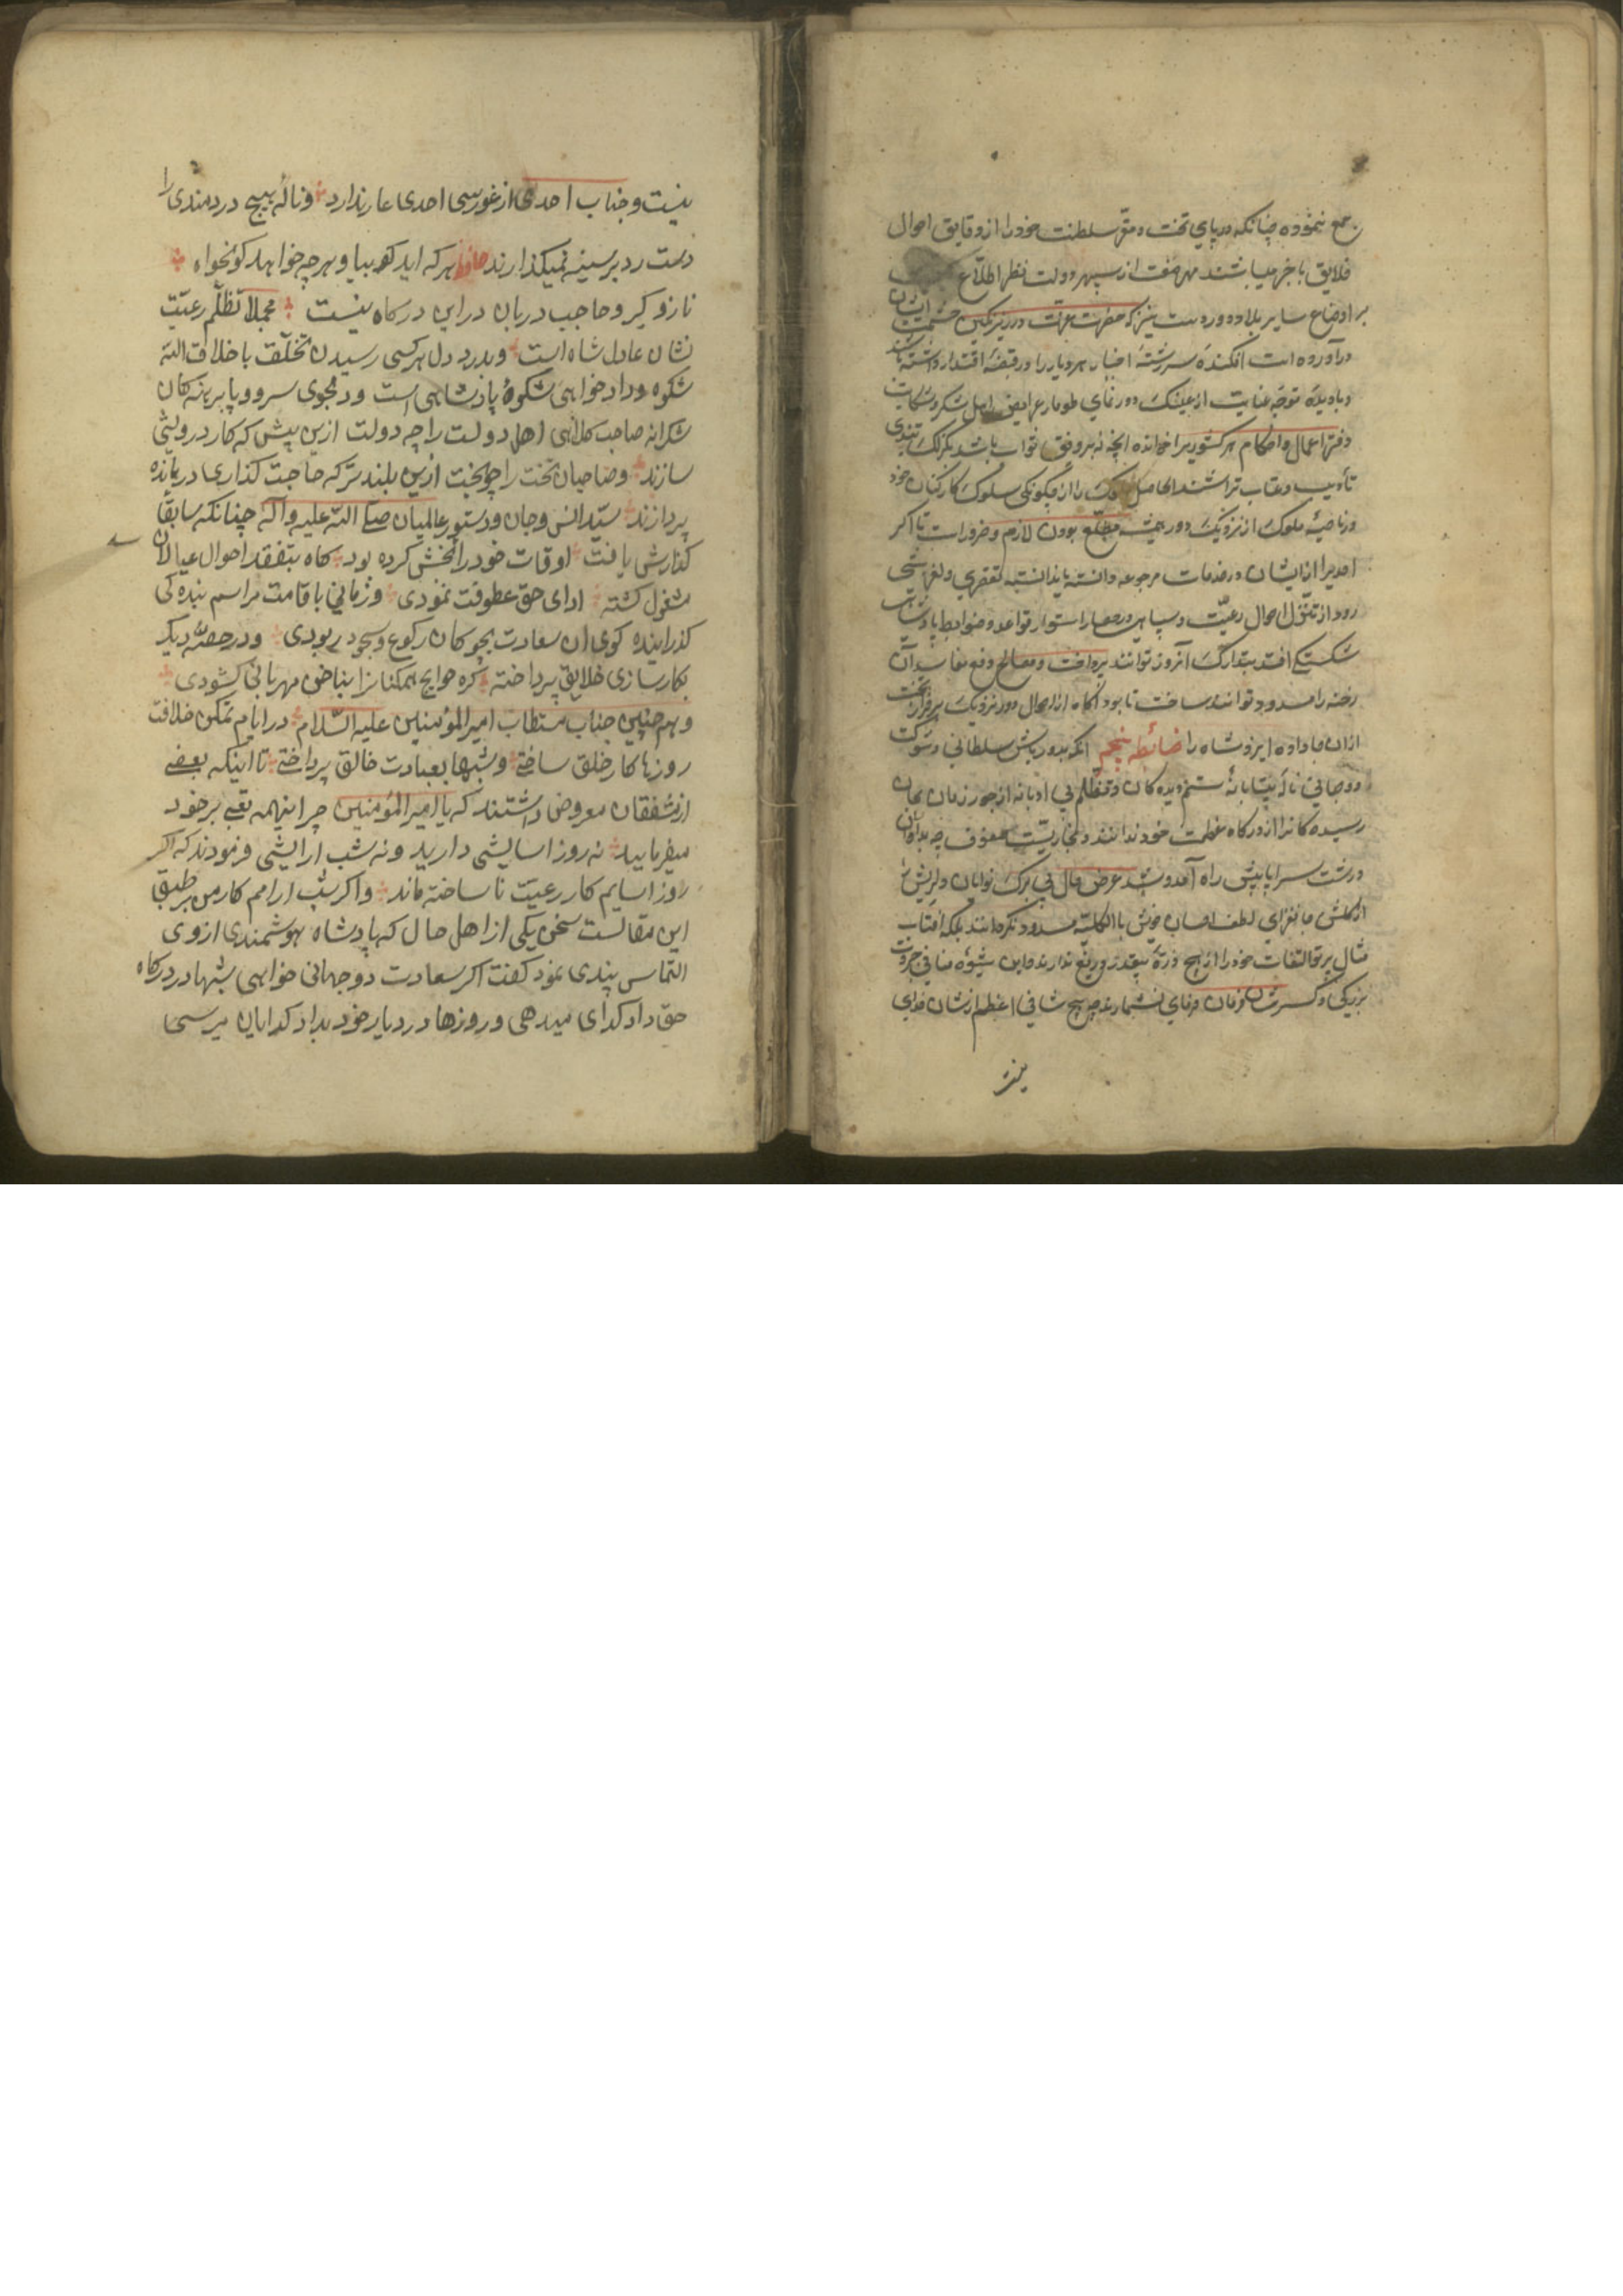 جمع ننموده چنانکه در پای تخت و مقرّ سلطنت خود را از دقایق احوال
خلایق با خبر میباشند از سپهر دولت نظر اطلاع
بر اوضاع سایر بلاد دور دست نیز که حضرت عزت در زیر نگین حشمت ایشان
درآورده است افکنده سررشتهٔ اخبار هر دیار را در قبضهٔ اقتدار داشته باشند
و بادیدهٔ توجّه عنایت از عینک دور نمای طومار عرایض اهل شکر و شکایت
دفتر اعمال و احکام هر کشور را خوانده انچه نه بر وفق ثواب باشد بگزلک تندی
تأدیب و عقاب تراشند الحاصل را از چگونکی سلوک کارکنان خود
در ناحیهٔ ملوک از نزدیک و دور مطّلع بودن لازم و ضرور است تا اگر
احدیرا از ایشان در خدمات مرجوعه دانسته یا ندانسته تقصیری و لغزشی
رود از تنزل احوال رعیّت و سپاهی در حصار استوار قواعد و ضوابط پادشاهی
شکستی افتد بتدارک آنروز توانند پرداخت و مصالح دفع مفاسد آن
رخنه را مسدود توانند ساخت تا بود آگاه از احوال دور و نزدیک بر فراز تخت
ازان جا داده ایزد شاه را ضابطهٔ پنجم انکه بدور باش سلطانی و شوکت
دو جهانی نالهٔ بیتابانهٔ ستم دیده کان و تظلّم بی ادبانه از جور زمان بجان
رسیده کانرا از درکاه عظمت خود ندانند
درشت سراپا پیش راه آمد و شد عرض حال بی برک نوایان دلریش را
از کلشن جانفزای لطف احسان خویش باالکلیّه مسدود نکردانند بلکه افتاب
مثال پرتو التفات خود را از هیچ ذرّهٔ بیقدر دریغ ندارند و این شیوه منافی جبروت
بزرگی و کسر شان فرمان فرمای نشمارند چه هیچ شانی اعظم از شان خدای
نیست
نیست و جناب احدی از غوررسی احدی عار ندارد و نالهٔ هیچ دردمندی را
دست رد بر سینه نمیکذارند حافظ هر که اید کو بیا و هر چه خواهد کو بخواه
ناز و کبر و حاجب دربان در این درکاه نیست مجملا تظلّم رعیّت
نشان عادل شاه است و بدرد دل هر کسی رسیدن تخلّق باخلاق الله
شکوه و دادخواهی شکوهٔ پادشاهی است و دلجوی سر و پا برهنه کان
شکرانه صاحب کلاهی اهل دولت را چه دولت ازین بیش که کار درویشی
سازند و صاحبان تخت را چه بخت ازین بلندتر که حاجت کذاری درمانده
پردازند سیّد انس و جان و دستور عالمیان صلی الله علیه و آله چنانکه سابقًا
کذارش یافت اوقات خود را بخش کرده بود کاه بتفقد احوال عیالان
مشغول کشته ادای حق عطوفت نمودی و زمانی باقامت مراسم بنده کی
کذرانیده کوی ان سعادت بچوکان رکوع و سجود ربودی و در حصّه دیکر
بکارسازی خلایق پرداخته کره حوایج همکنانرا بناخن مهربانی کشودی
و هم چنین جناب مستطاب امیرالمؤمنین علیه السّلام در ایام تمکن خلافت
روزها کار خلق ساختی و شبها بعبادت خالق پرداختی تا اینکه بعضی
از مشفقان معروض داشتند که یا امیرالمؤمنین چرا اینهمه تعب بر خود
میفرمایید نه روز اسایشی دارید و نه شب ارامشی فرمودند که اکر
روز اسایم کار رعیّت ناساخته ماند و اکر شب ارامم کار من بر طبق
این مقالست سخن یکی از اهل حال که پادشاه هوشمندی از وی
التماس پندی نمود کفت اکر سعادت دو جهانی خواهی شبها در درکاه
حق داد کدای میدهی و روزها در دربار خود بداد کدایان میرسی